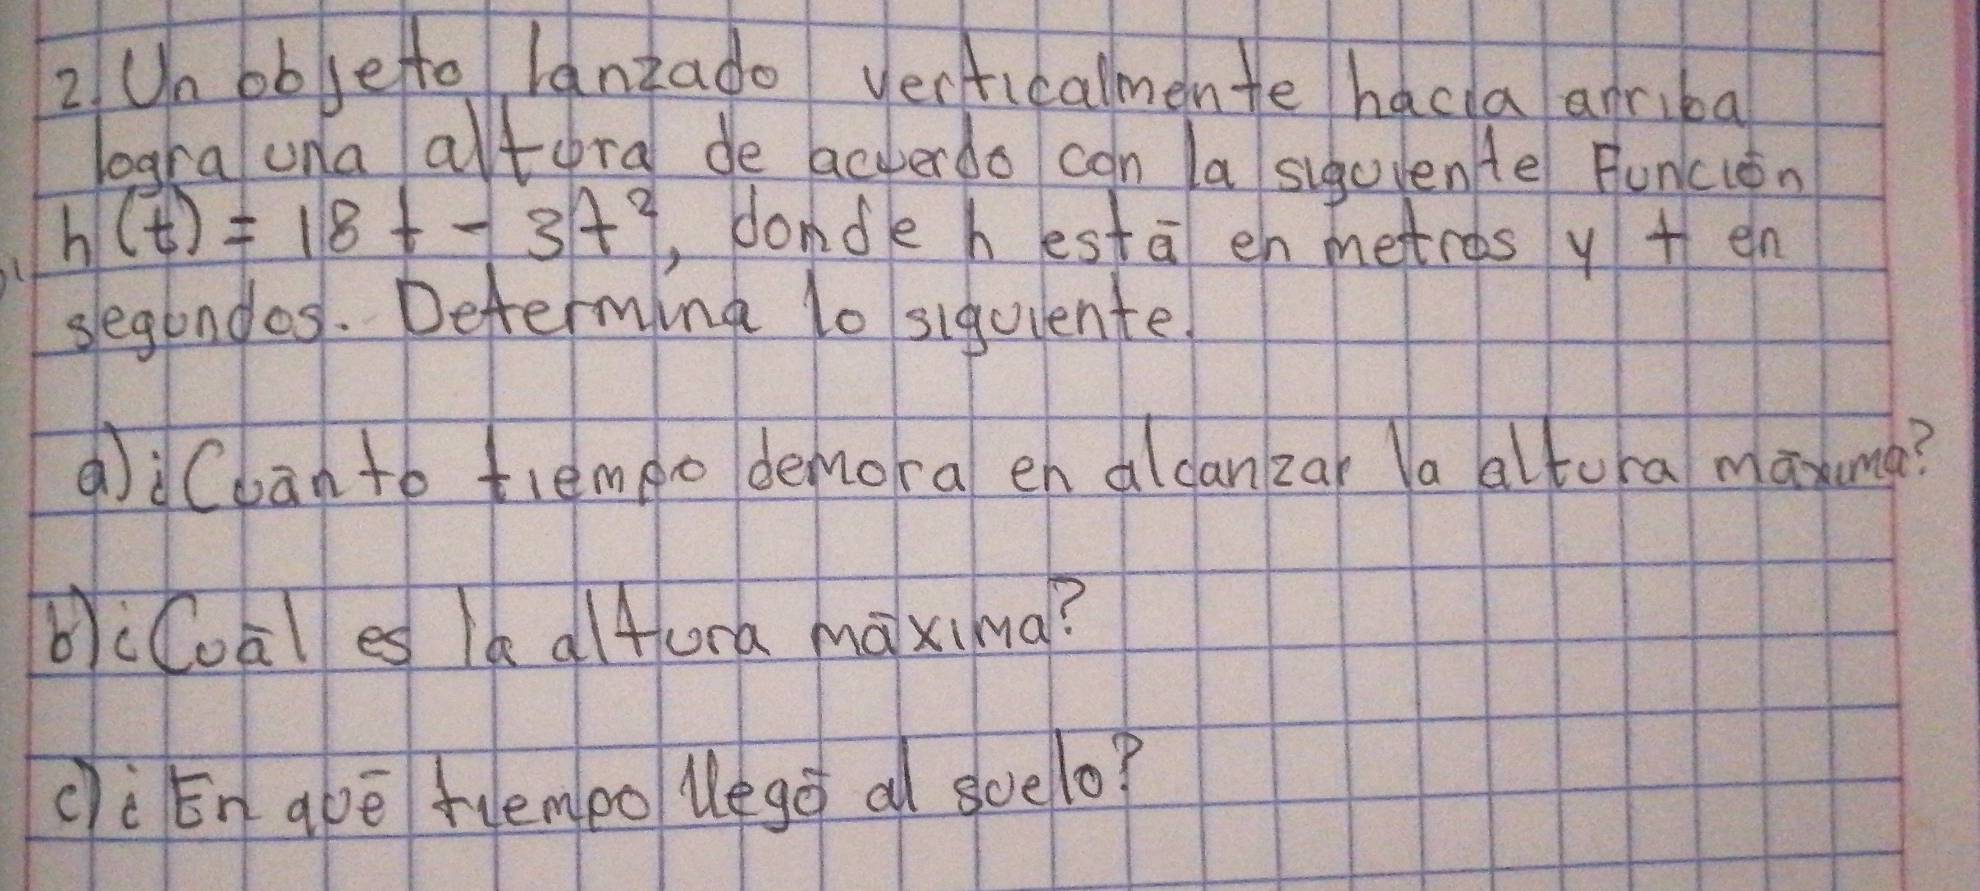 2. Un objeto lanzado verticalmente hacia arriba
logra una altura de acuerdo con la siguiente Función
h(t) = 18t - 3t², donde h está en metros y t en
segundos. Determina lo siguiente.
a) ¿Cuánto tiempo demora en alcanzar la altura máxima?
b) ¿Cuál es la altura máxima?
c) ¿En qué tiempo llegó al suelo?